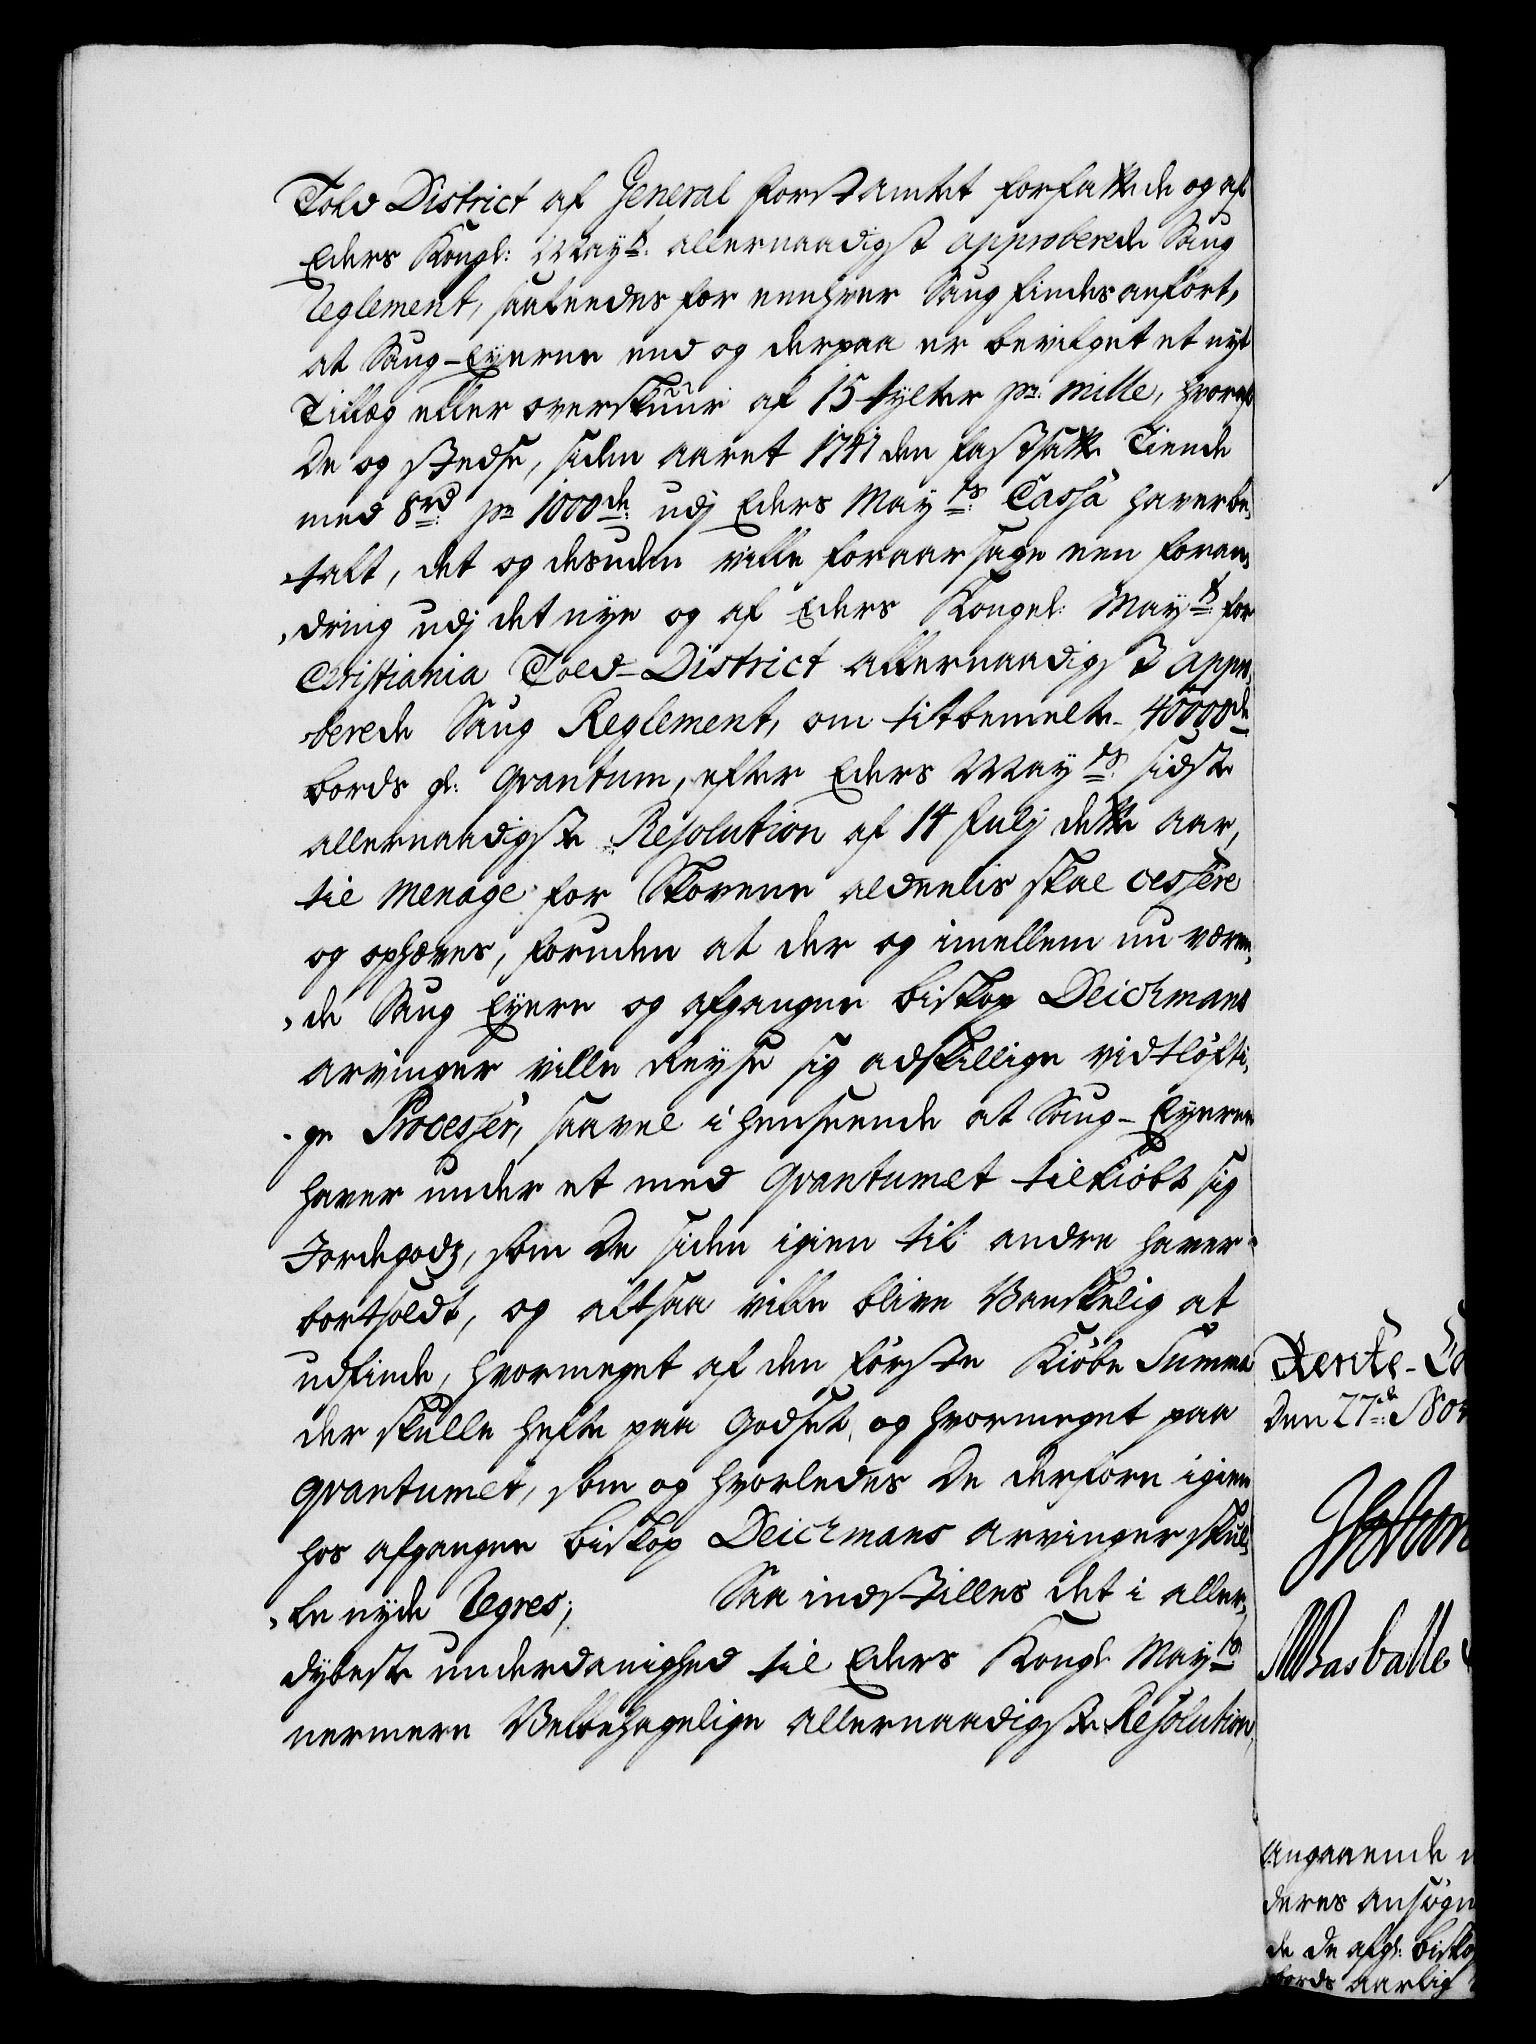 Told District af General Forst Amtet forfattede og af
Eders Kongl: Mayts: allernaadigst approberede Saug
Reglement, saaleedes for eenhver Saug findes anfört,
at Saug-Eyerne end og derpaa er bevilget et nyt
Tillæg eller overskuur af 15 tylter pr: mille, hvoraf
De og stedse, siden aaret 1741 den fastsatte Tiende
med 8rd: pr 1000de: udj Eders Mayts: Cassa haver be,
,talt, det og desuden ville foraarsage een foran,
,dring udj det nye og af Eders Kongel: Mayts: for
Christiania Told-District allernaadigst appro,
,berede Saug Reglement, om titbemelte 40000de
bords qv: Qvantum, efter Eders Mayts: sidste
allernaadigste Resolution af 14 Julj dette aar,
til menage for Skovene aldeelis skal cessere
og ophæves, foruden at der og imellem nu væren,
,de Saug Eyere og afgangne Biskop Deichmans
arvinger ville Reyse sig adskillige vidtlöfti,
,ge Processer, saavel i henseende at Saug-Eyerne
haver under et med Qvantumet tilkiöbt sig
Jordegodz, som De siden igien til andre haver
bortsoldt, og altsaa ville blive Vanskelig at
udfinde, hvormeget af den förste Kiöbe Summa
der skulle hefte paa Godset, og hvormeget paa
Qvantumet, som og hvorledes De derfore igien
hos afgangne Biskop Deichmans Arvinger skul,
,le nyde Regres; Saa indstilles det i aller,
dybeste underdanighed til Eders Kongl: Mayts
nermere Velbehagelige allernaadigste Resolution,
Rente-
Den 27de:
Angaaende
deres ansögn
de De afg: Bisko
bords aarlig